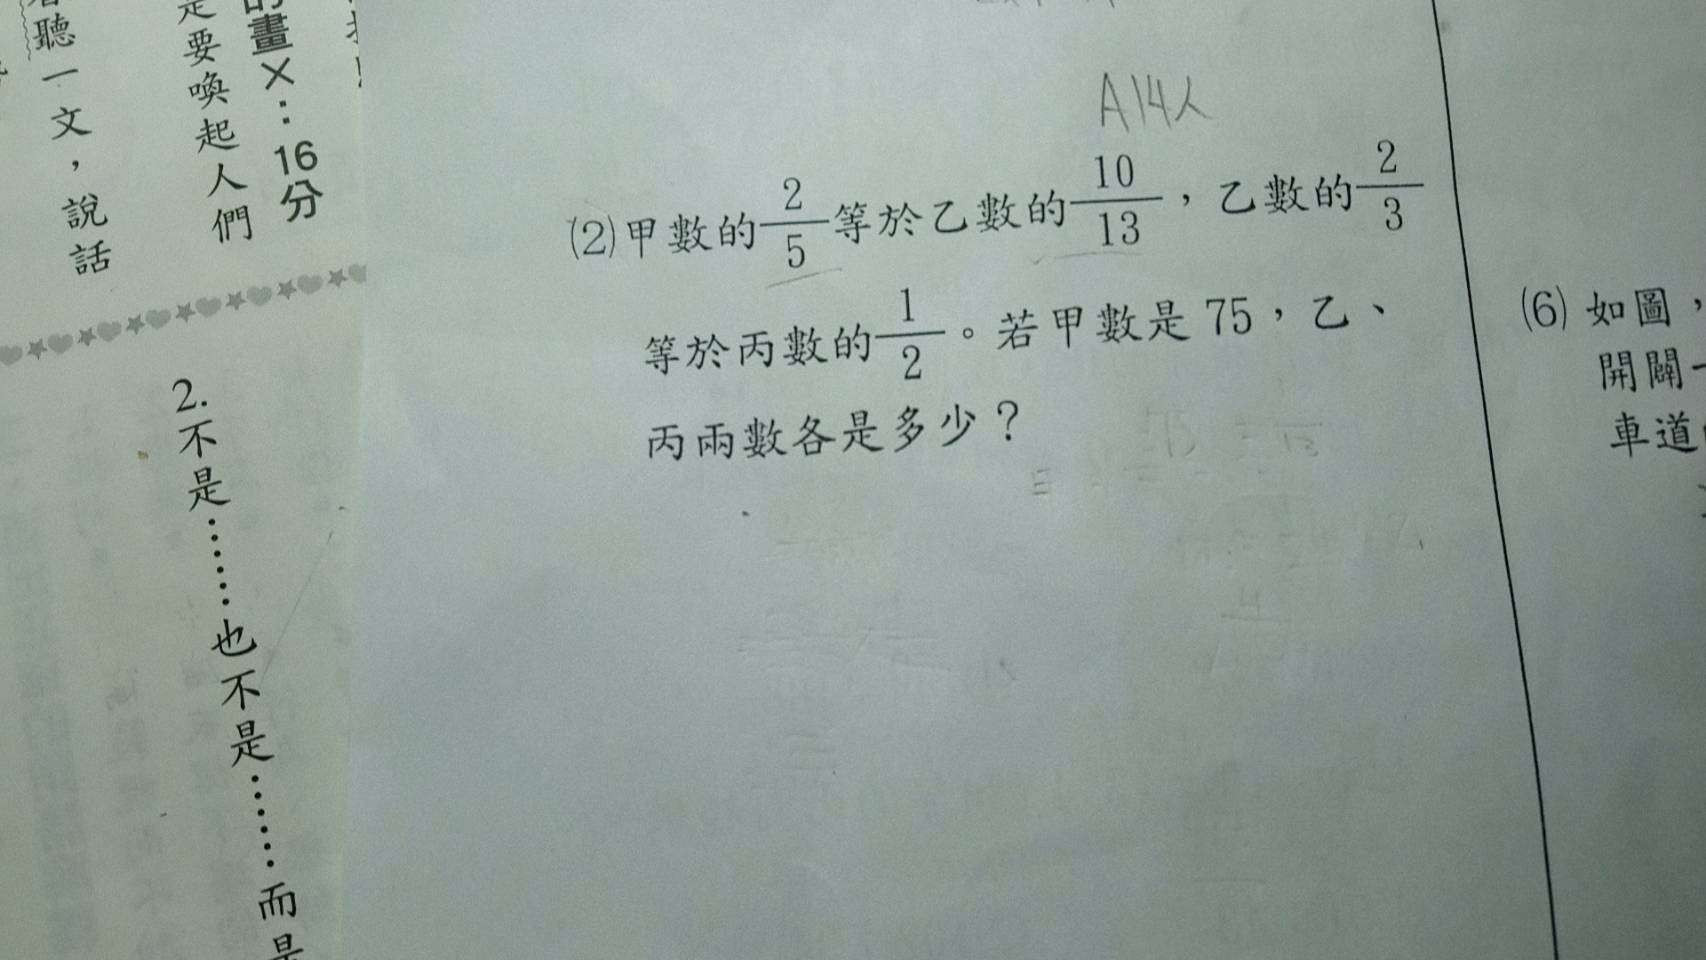 聽一文，說話
是要喚起人們
的畫×：16分
2.不是……也不是……而是
A 14人
(2)甲數的2/5等於乙數的10/13，乙數的2/3
等於丙數的1/2。若甲數是75，乙、
丙兩數各是多少？
(6)如圖，
開闢一
車道